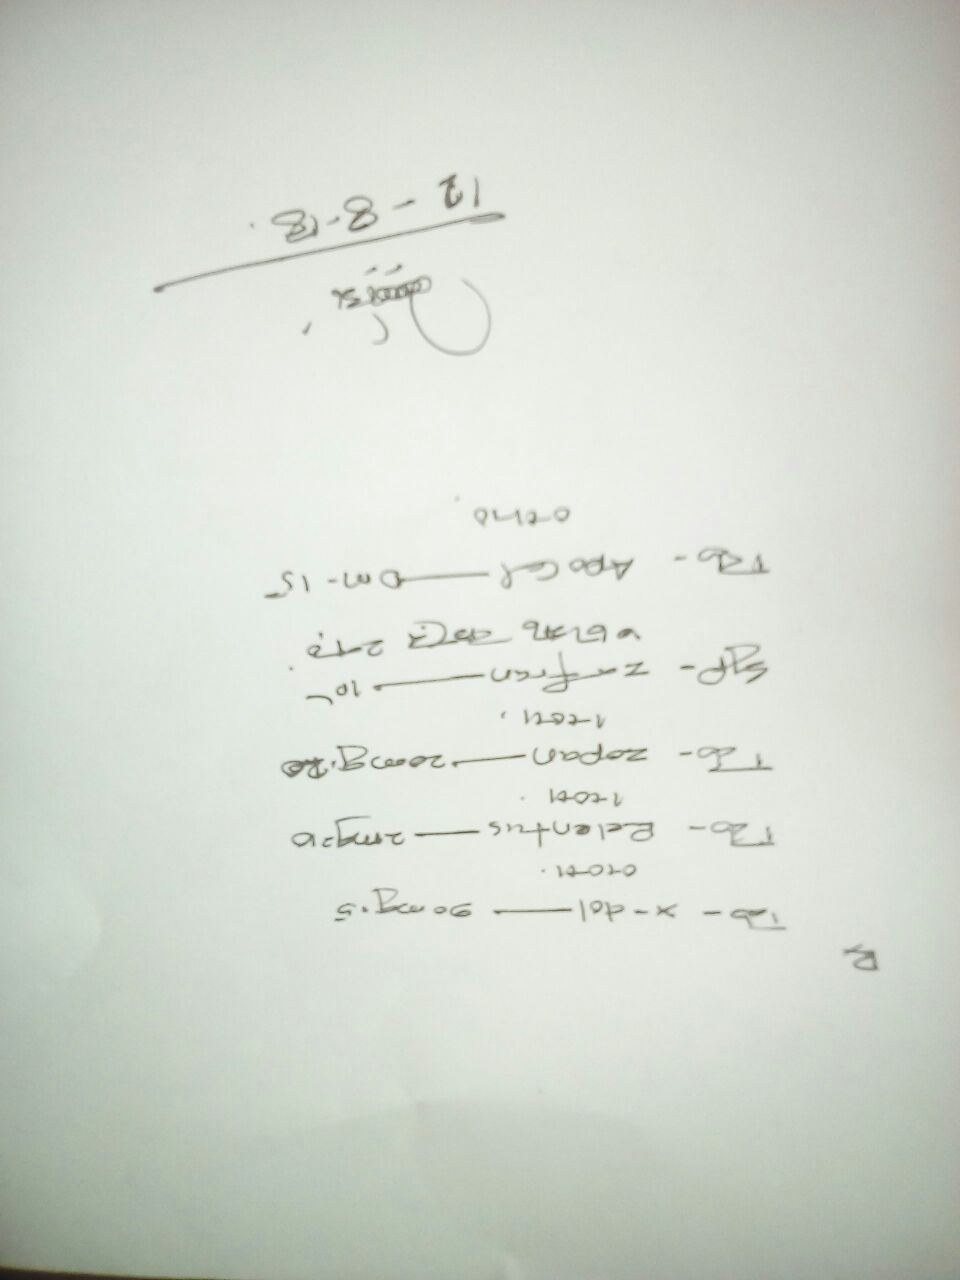 Rx
Tab - x-dol — 90mg.5
0+0+1.
Tab - Relentus — 2mg 20
1+0+1.
Tab - zopan — 20mg.20
1+0+1.
Syp - zarfran — 10
Tab - Apo Cal — Dm - 15
0+1+0.
12-8-18.